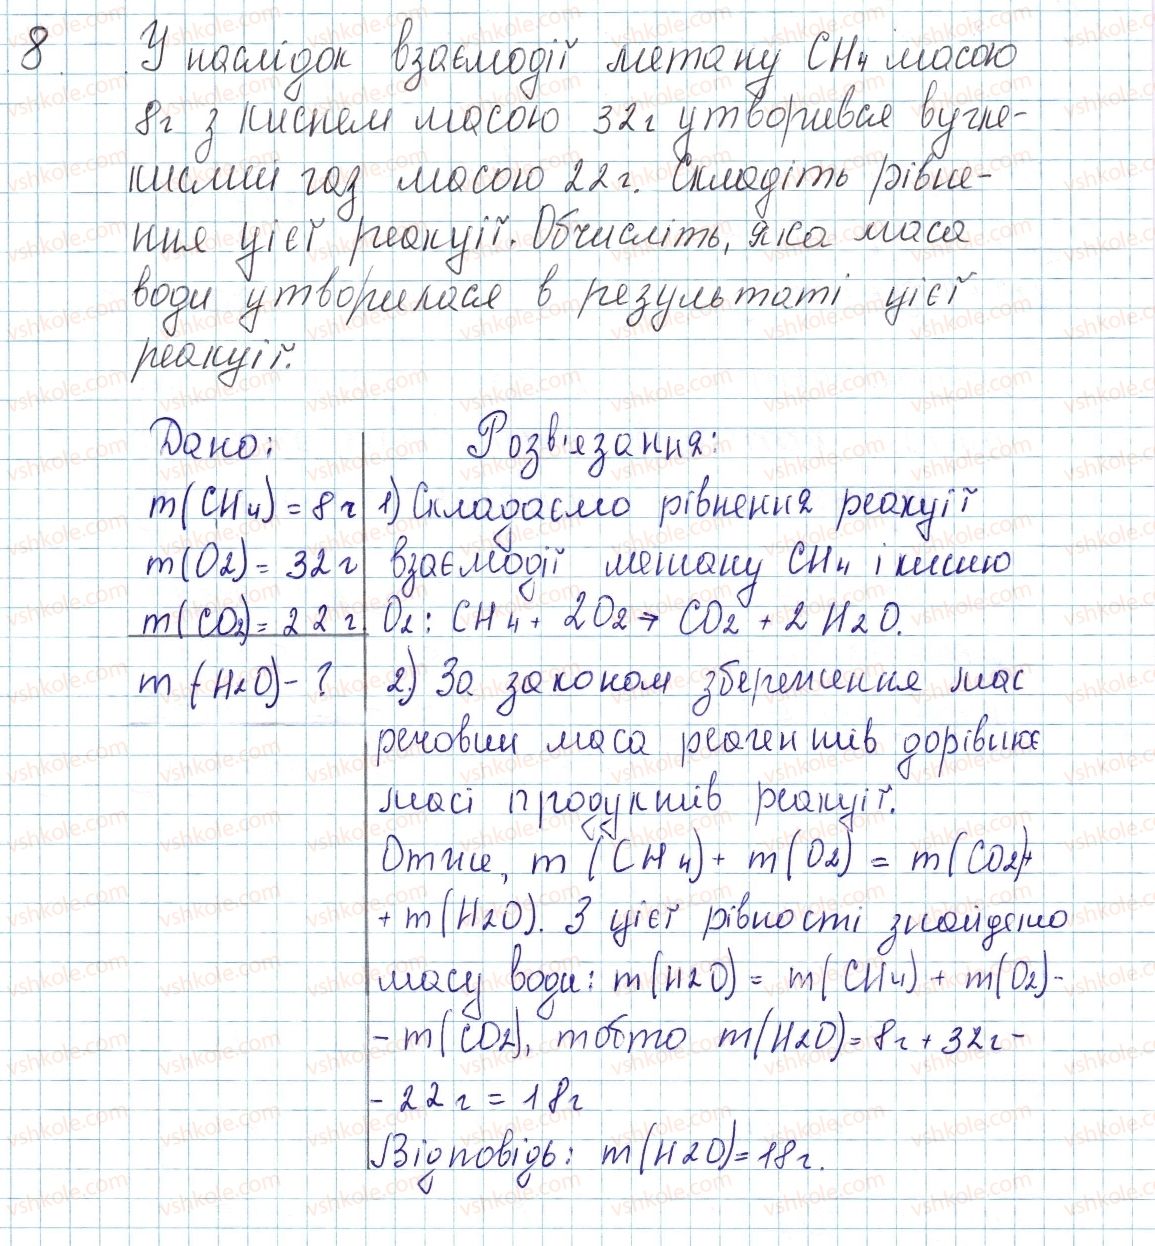 8. Унаслідок взаємодії метану CH4 масою
8г з киснем масою 32г утворився вугле-
кислий газ масою 22г. Складіть рівне-
ння цієї реакції. Обчисліть, яка маса
води утворилася в результаті цієї
реакції.
Дано:
m(CH4) = 8г
m(O2) = 32г
m(CO2) = 22г
m(H2O) - ?
Розв'язання:
1) Складаємо рівняння реакції
взаємодії метану CH4 і кисню
O2: CH4 + 2O2 → CO2 + 2H2O.
2) За законом збереження мас
речовин маса реагентів дорівнює
масі продуктів реакції.
Отже, m(CH4) + m(O2) = m(CO2)+
+ m(H2O). З цієї рівності знайдемо
масу води: m(H2O) = m(CH4) + m(O2) -
- m(CO2), тобто m(H2O) = 8г + 32г -
- 22г = 18г
Відповідь: m(H2O) = 18г.